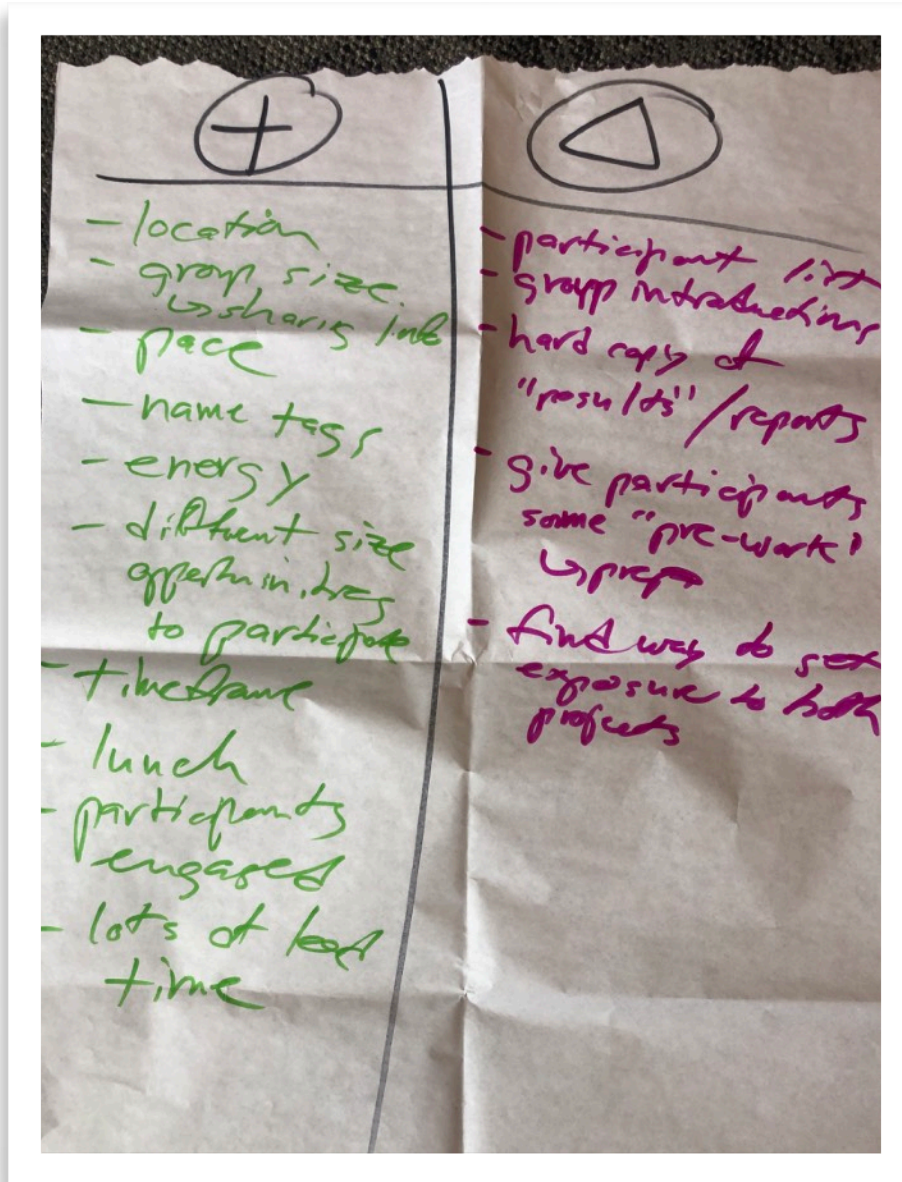 +
- location
- group size
↳ sharing info
- pace
- name tags
- energy
- different size
opportunities
to participate
- timeframe
- lunch
- participants
engaged
- lots of lead
time
△
- participant list
- group introductions
- hard copy of
"results" / reports
- give participants
some "pre-work"
↳ prep
- find way to get
exposure to both
projects